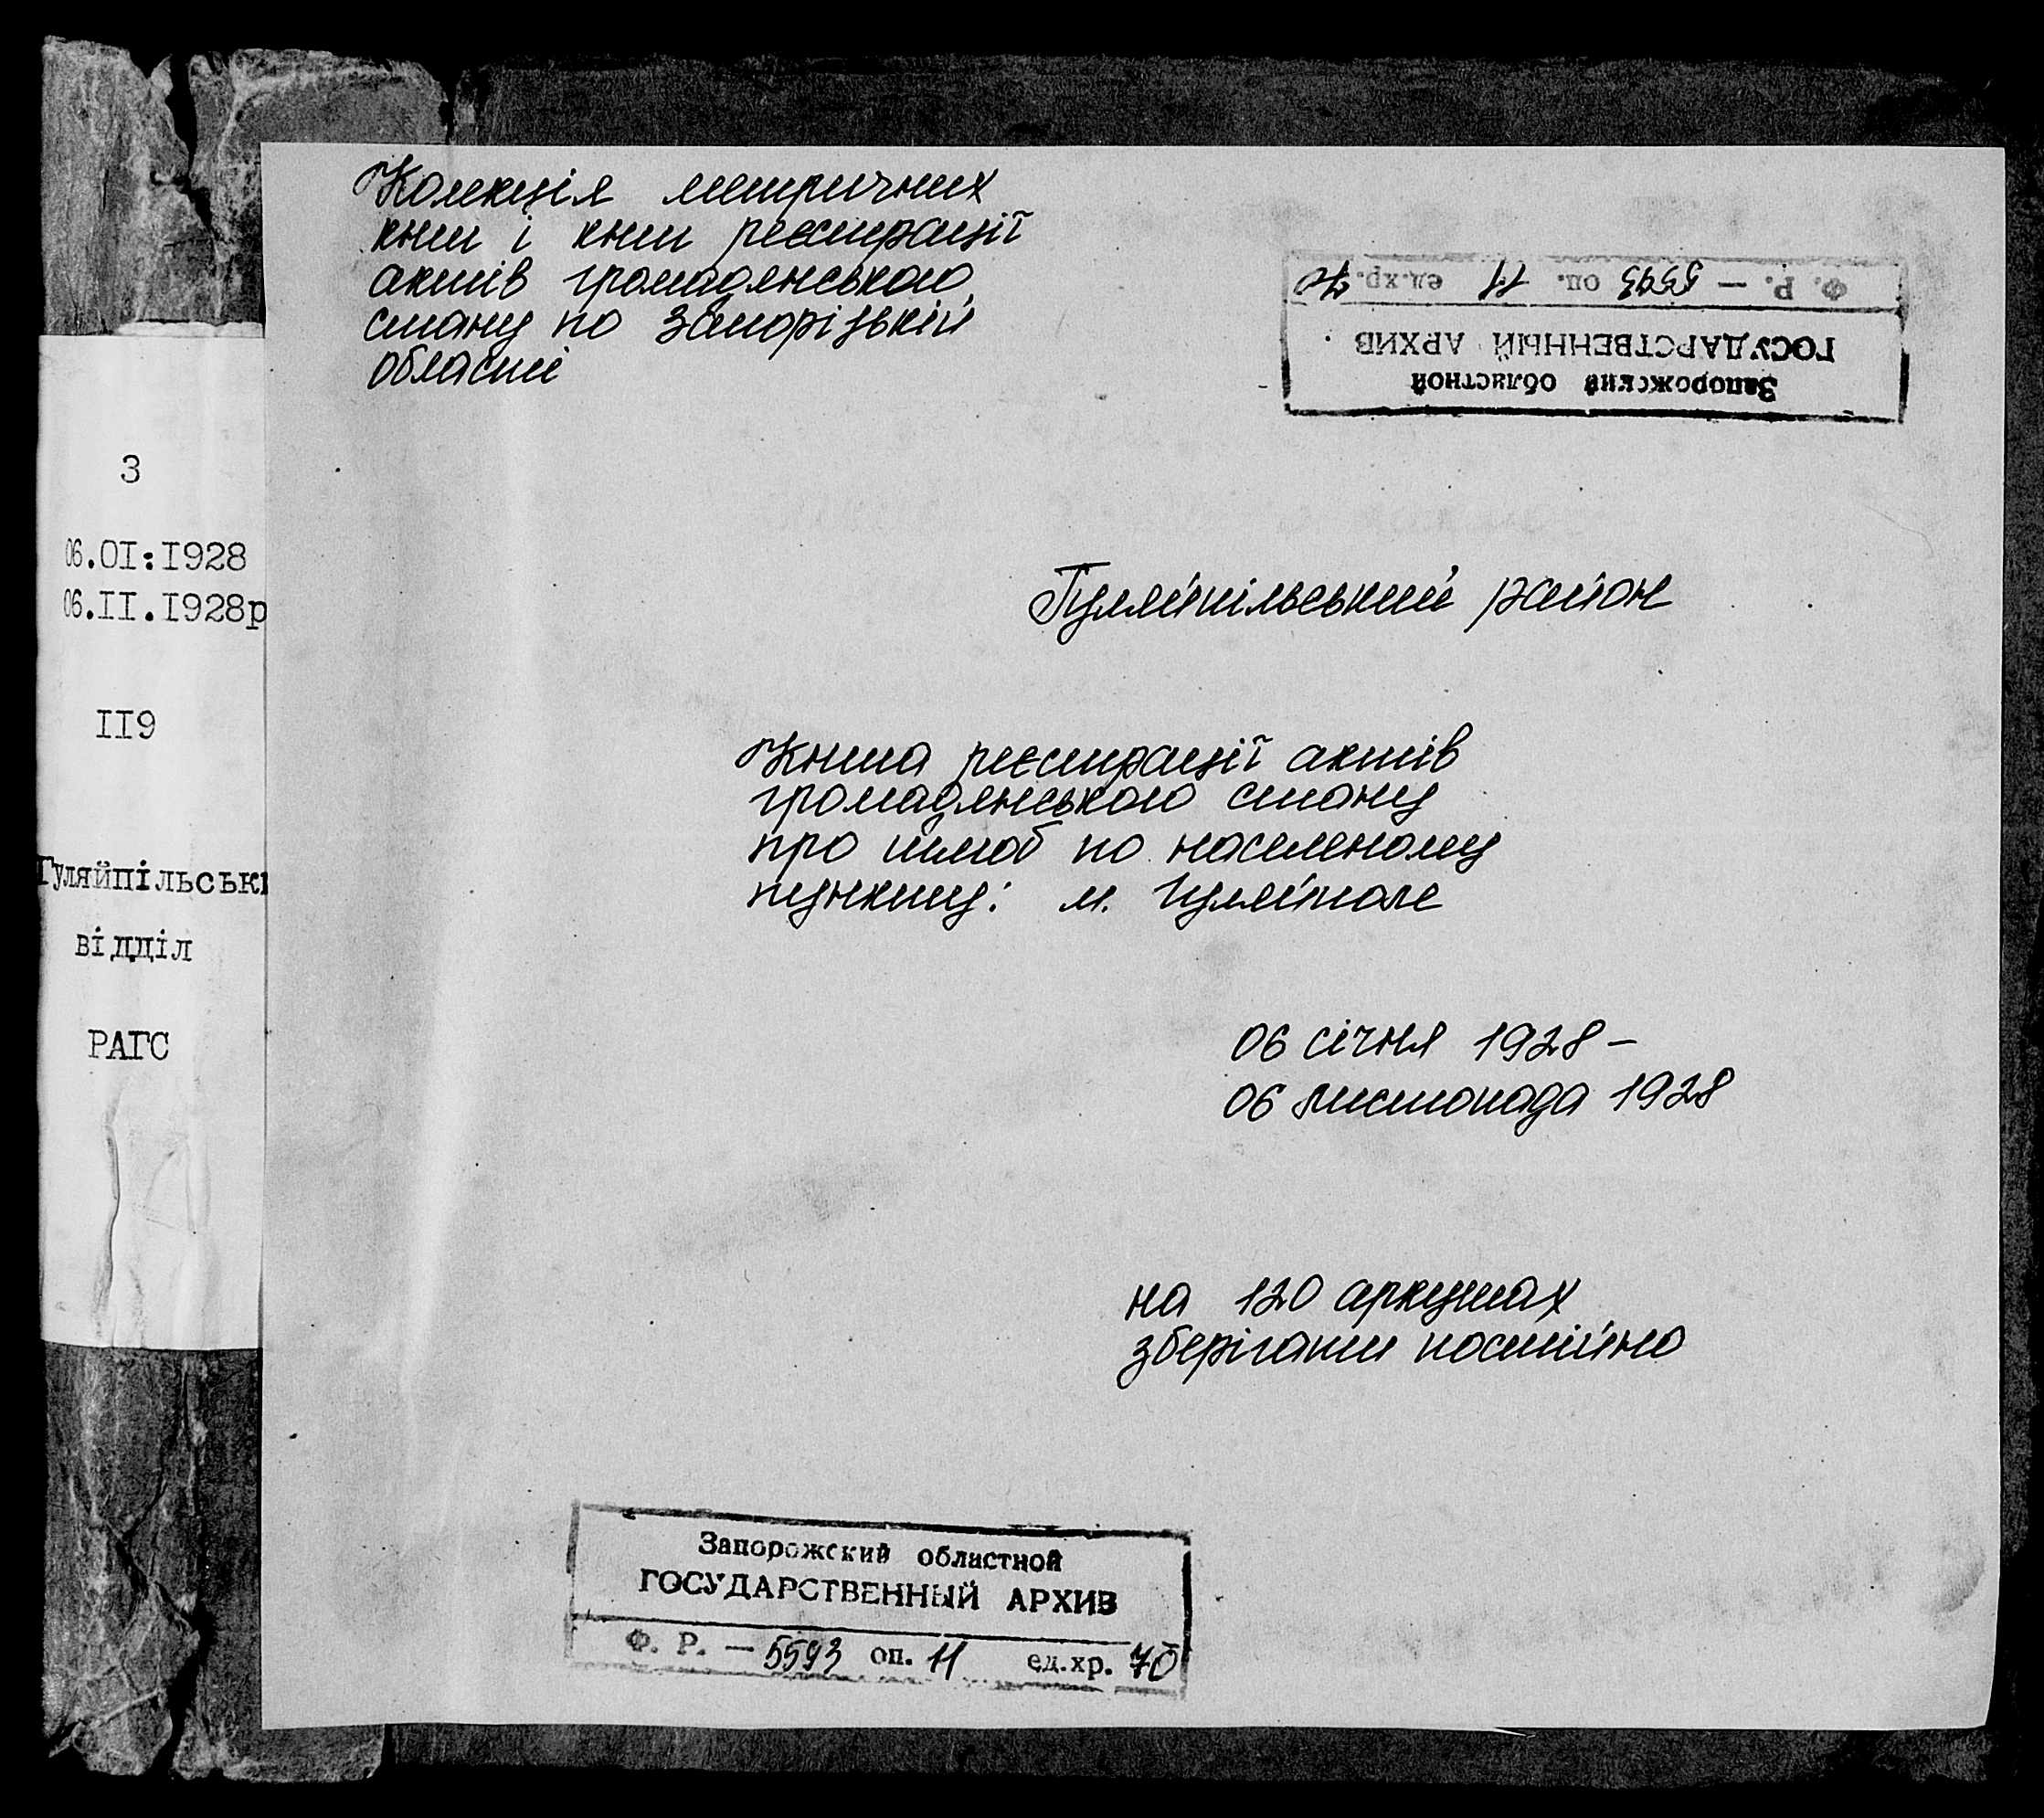 Колекція метричних
книг і книг реєстрації
актів громадянського
стану по Запорізькій
області
Ф. Р. — 5593 оп. 11 ед.хр. 70
ГОСУДАРСТВЕННЫЙ АРХИВ
Запорожский областной
3
06.OI:I928
06.II.I928р
II9
Гуляйпільськ
відділ
РАГС
Гуляйпільський район
Книга реєстрації актів
громадянського стану
про шлюб по населеному
пункту: м. Гуляйполе
06 січня 1928 –
06 листопада 1928
на 120 аркушах
зберігати постійно
Запорожский областной
ГОСУДАРСТВЕННЫЙ АРХИВ
Ф. Р. — 5593 оп. 11 ед.хр. 70